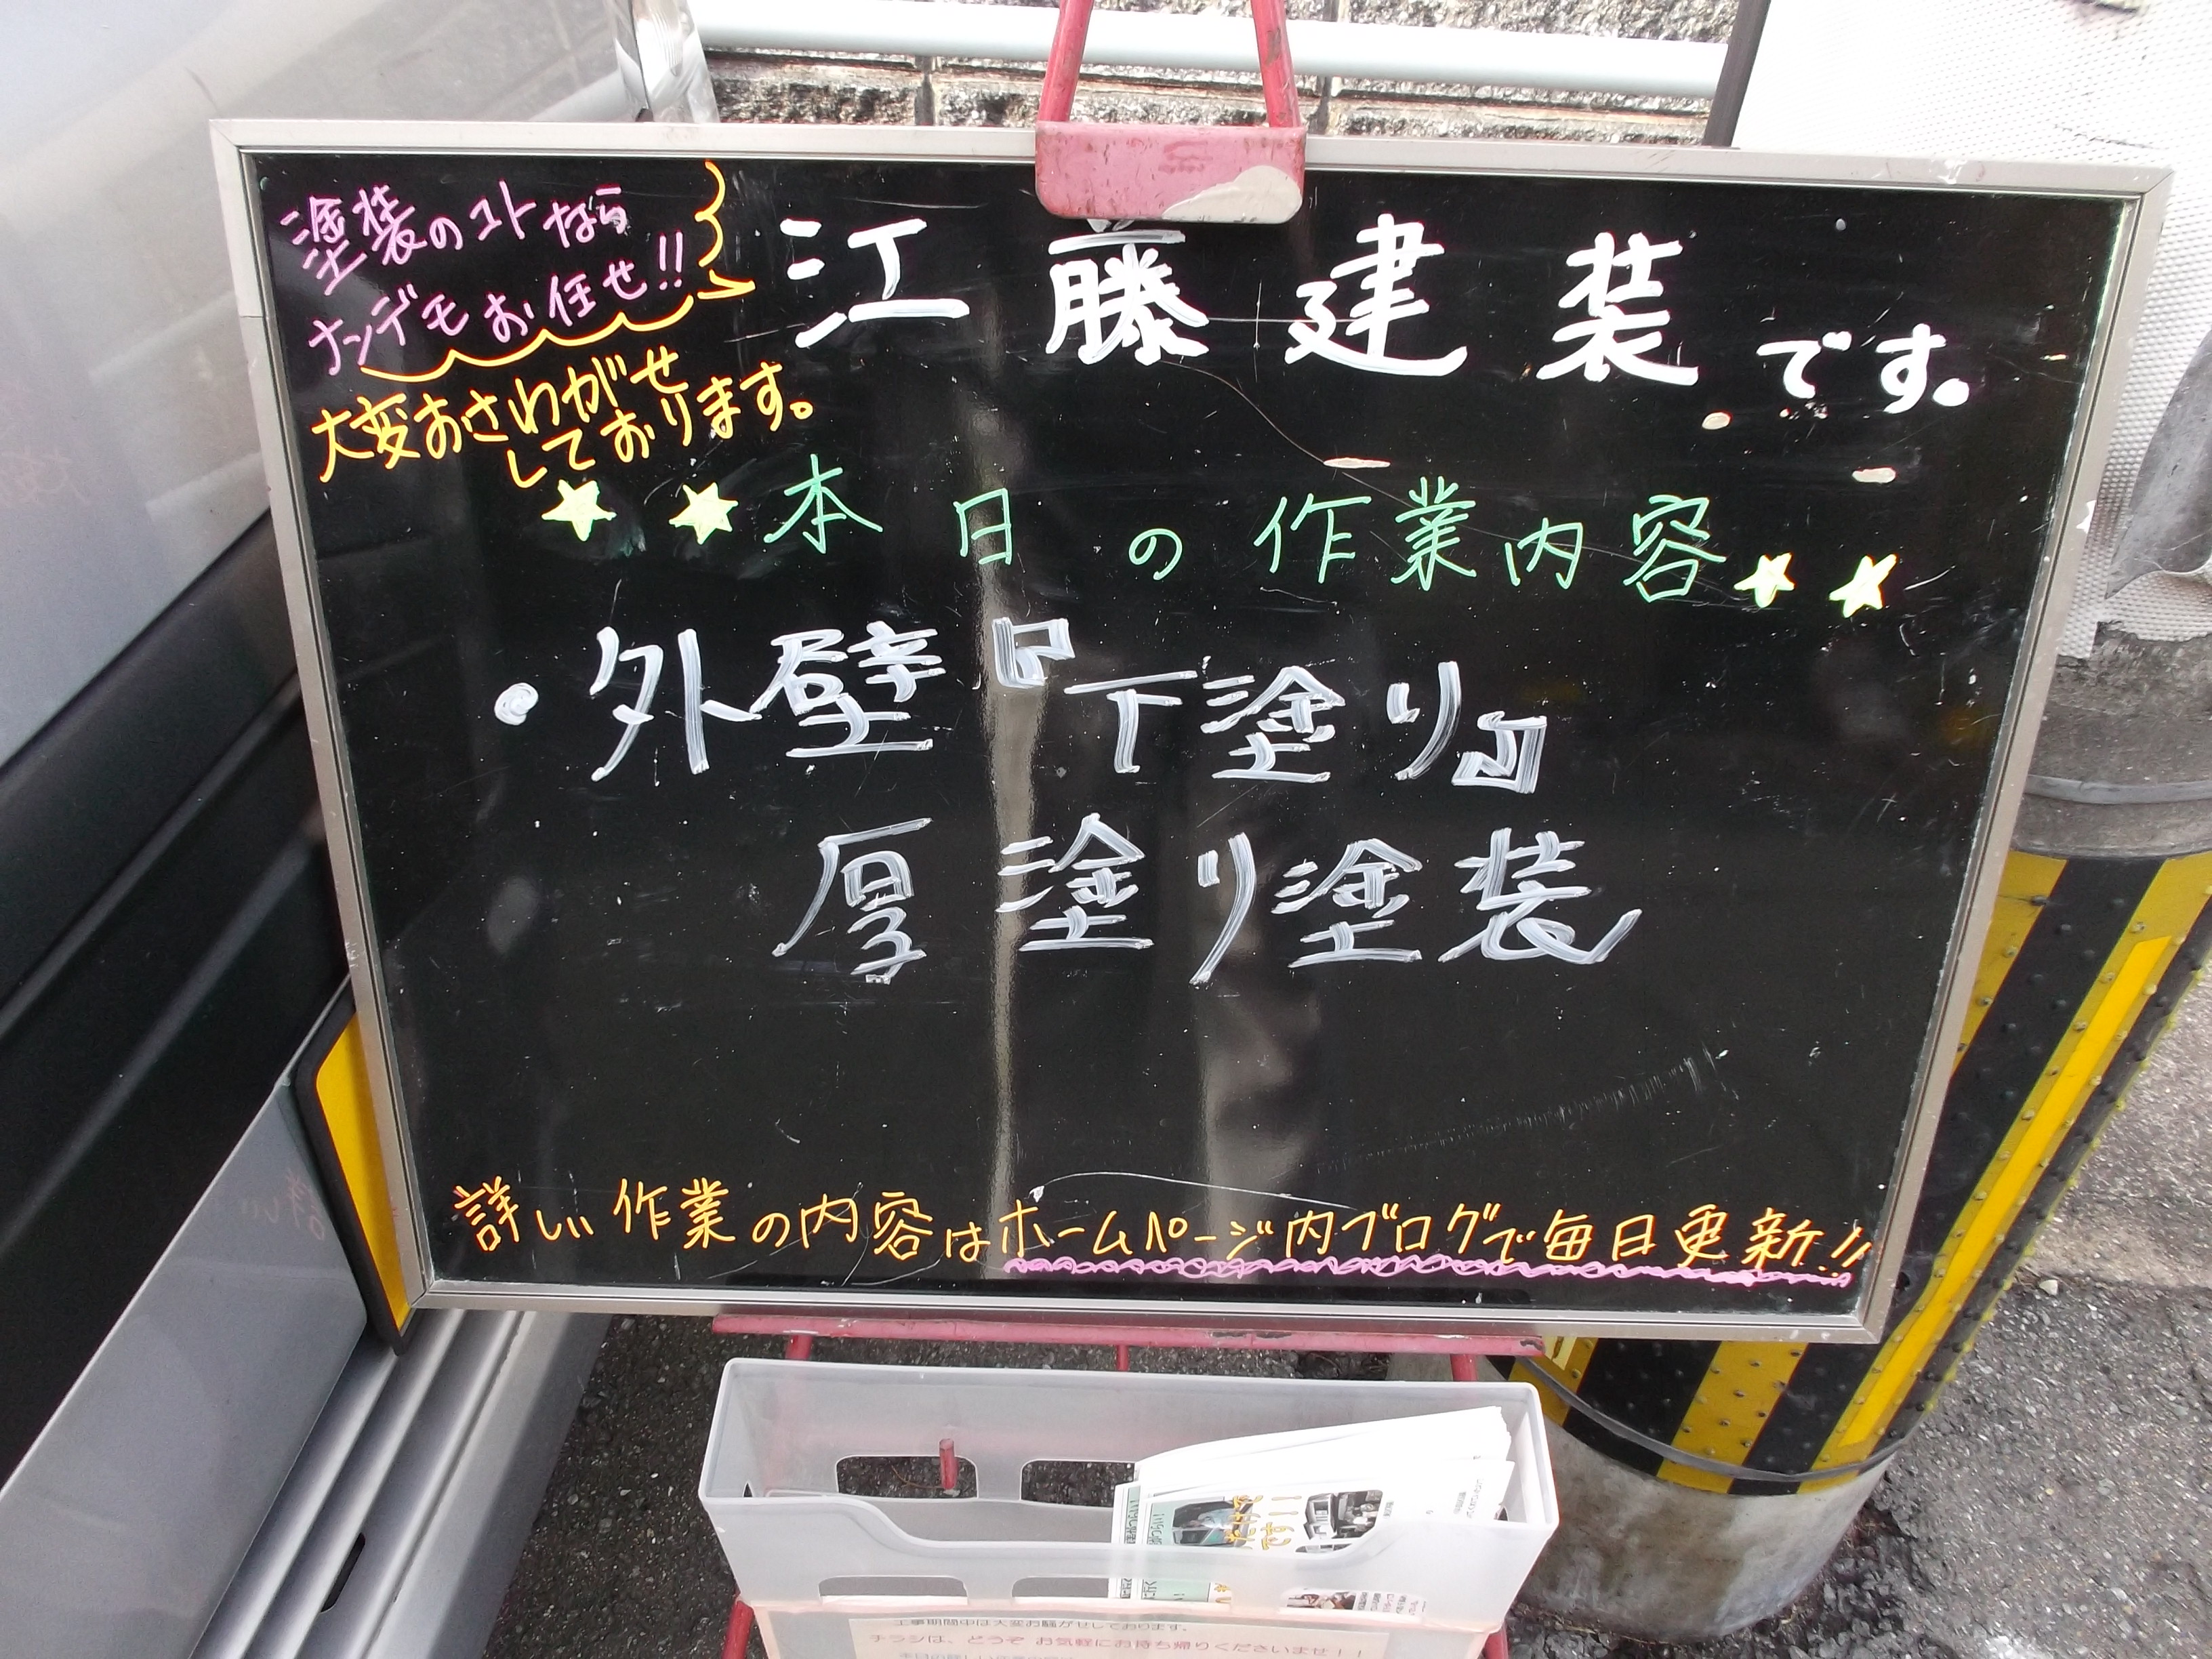 塗装のコトなら
ナンデモお任せ!!
江藤建装です。
大変おさわがせ
しております。
★★本日の作業内容★★
・外壁『下塗り』
厚塗り塗装
詳しい作業の内容はホームページ内ブログで毎日更新!!
工事期間中は大変お騒がせしております。
チラシは、どうぞ お気軽にお持ち帰りくださいませ!!